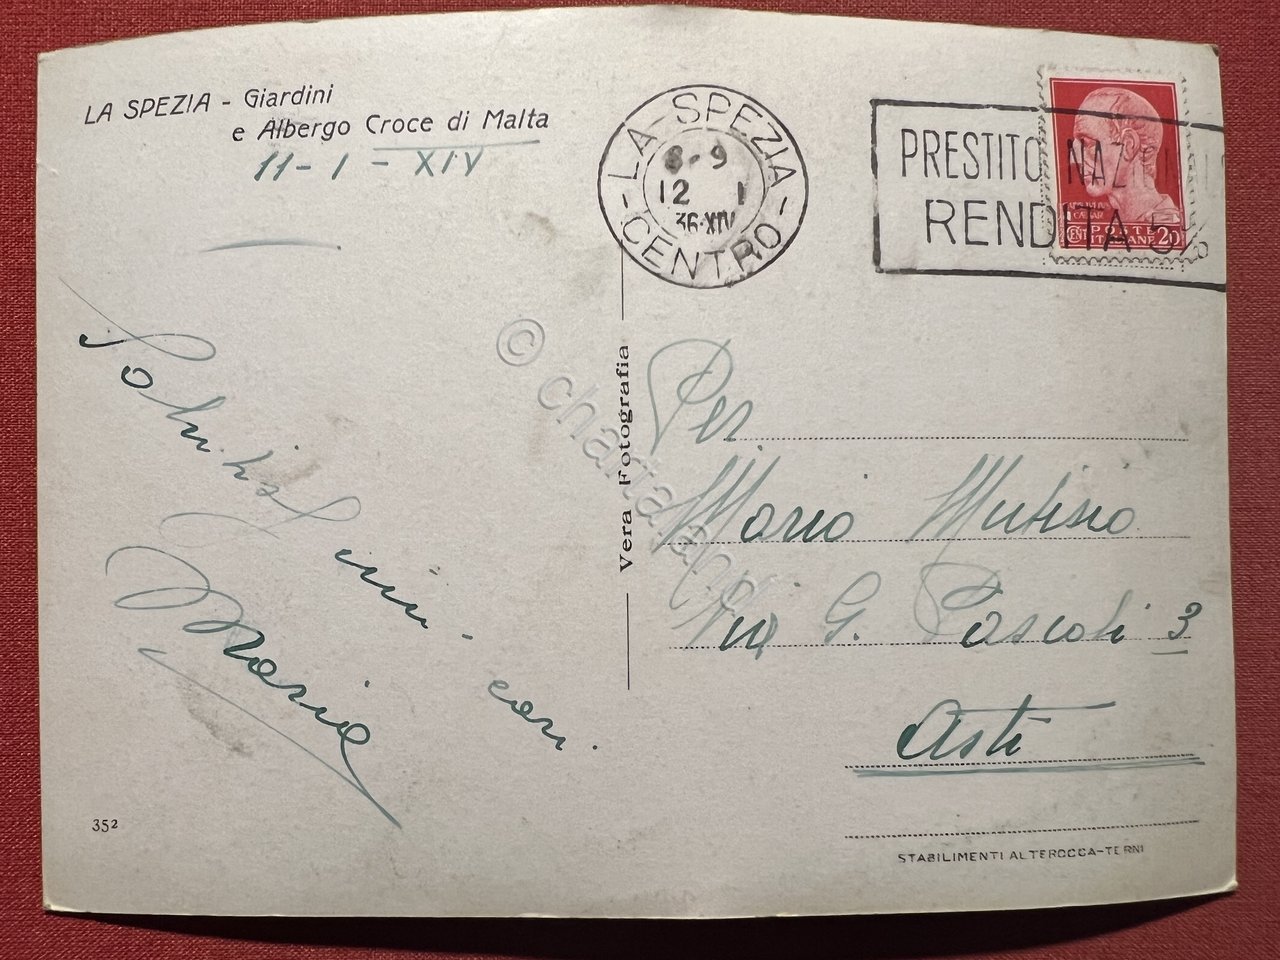 LA SPEZIA - Giardini
e Albergo Croce di Malta
11-1-XIV
LA-SPEZIA-
8-9
12 1
36·XIV
-CENTRO-
PRESTITO NAZI
RENDITA 5%
CENT 20
POSTE
ITALIANE
Vera Fotografia
© charta
Per
Mario
Via G. Pascoli 3
Asti
Saluti
cari
Maria
352
STABILIMENTI ALTEROCCA-TERNI